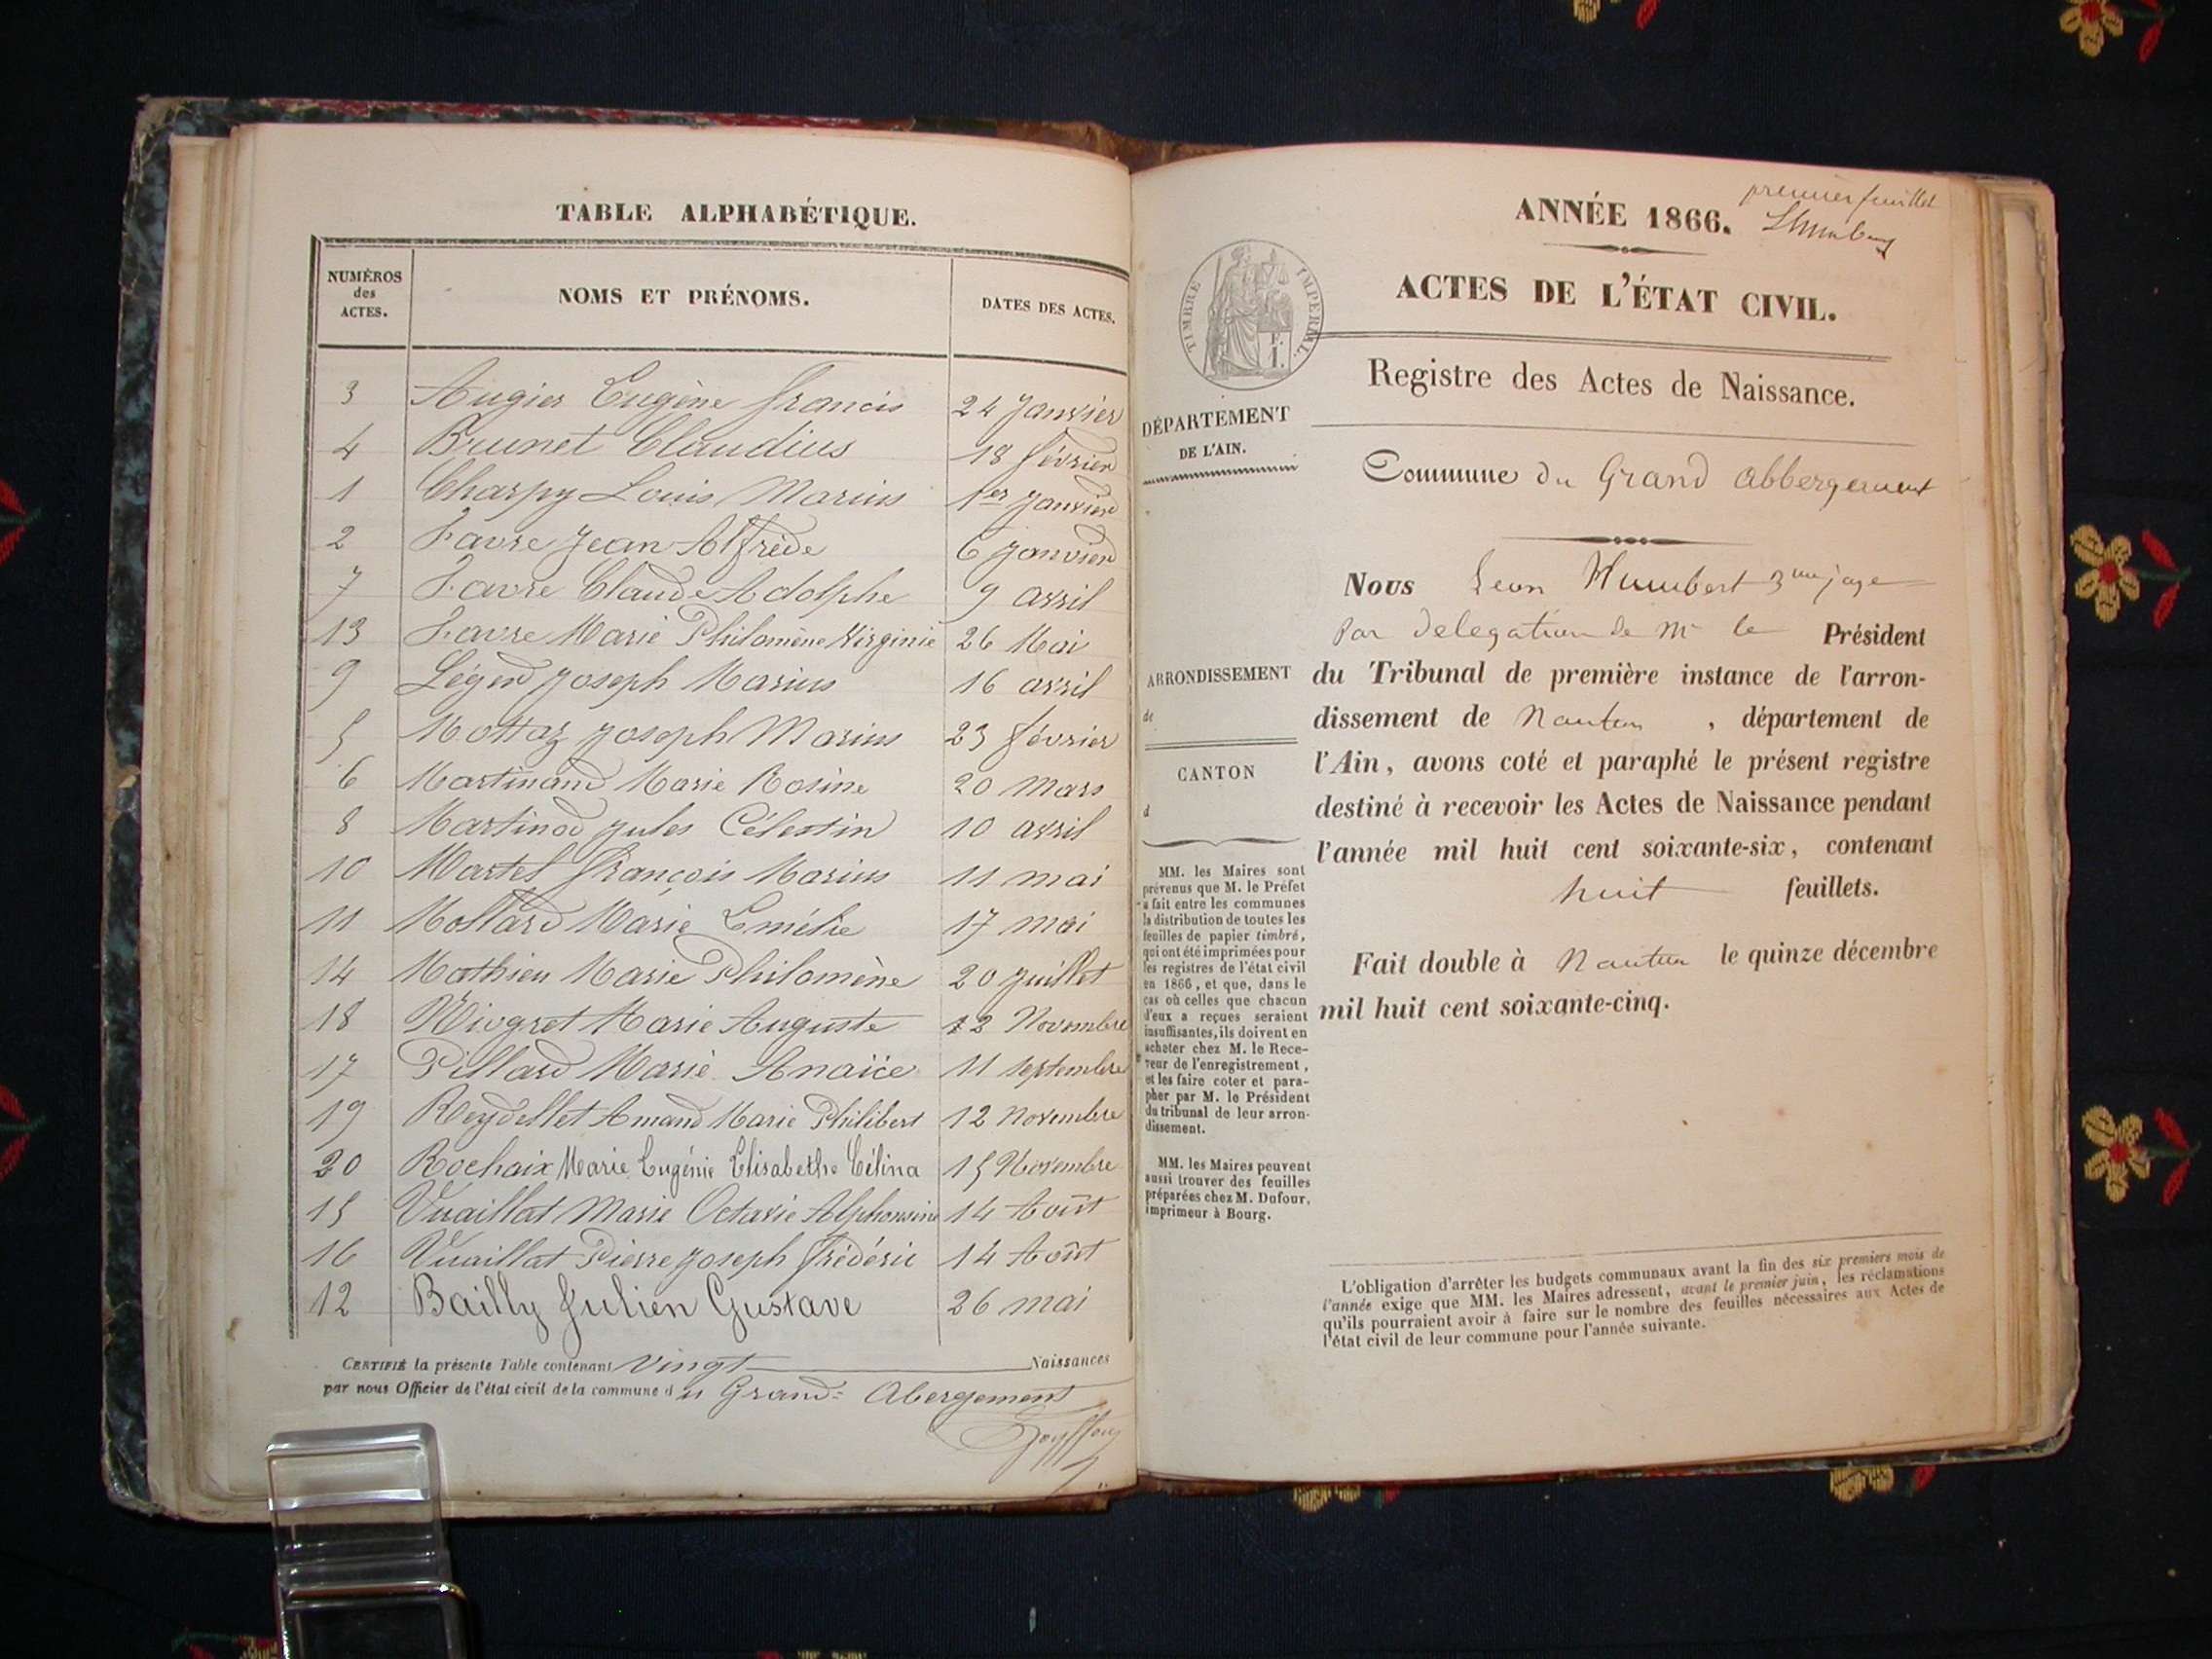 TABLE ALPHABÉTIQUE.
NUMÉROS
des
ACTES.
NOMS ET PRÉNOMS.
DATES DES ACTES.
3 Augier Eugène Francis 24 Janvier
4 Brunet Claudius 18 février
1 Charpy Louis Marius 1er Janvier
2 Favre Jean Alfrède 6 Janvier
7 Favre Claude Adolphe 9 avril
13 Favre Marie Philomène Virginie 26 Mai
9 Léger Joseph Marius 16 avril
5 Mottaz Joseph Marius 23 février
6 Martinand Marie Rosine 20 Mars
8 Martinod Jules Célestin 10 avril
10 Martel François Marius 11 mai
11 Mollard Marie Emélie 17 mai
14 Mathieu Marie Philomène 20 Juillet
18 Nivgret Marie Auguste 12 Novembre
17 Pillard Marie Anaïce 11 septembre
19 Reydellet Amand Marie Philibert 12 Novembre
20 Rochaix Marie Eugénie Elisabethe Célina 15 Novembre
15 Vuaillat Marie Octavie Alphonsine 14 Août
16 Vuaillat Pierre Joseph Frédéric 14 Août
12 Bailly Julien Gustave 26 mai
CERTIFIÉ la présente Table contenant Vingt Naissances
par nous Officier de l'état civil de la commune du Grand-Abergement
premier feuillet
ANNÉE 1866.
ACTES DE L'ÉTAT CIVIL.
TIMBRE IMPERIAL.
F.
1.
Registre des Actes de Naissance.
DÉPARTEMENT
DE L'AIN.
Commune du Grand abbergement
Nous Leon Humbert juge
par delegation de Mr le Président
du Tribunal de première instance de l'arron-
dissement de Nantua, département de
l'Ain, avons coté et paraphé le présent registre
destiné à recevoir les Actes de Naissance pendant
l'année mil huit cent soixante-six, contenant
huit feuillets.
Fait double à Nantua le quinze décembre
mil huit cent soixante-cinq.
ARRONDISSEMENT
de
CANTON
d
MM. les Maires sont
prévenus que M. le Préfet
a fait entre les communes
la distribution de toutes les
feuilles de papier timbré,
qui ont été imprimées pour
les registres de l'état civil
en 1866, et que, dans le
cas où celles que chacun
d'eux a reçues seraient
insuffisantes, ils doivent en
acheter chez M. le Rece-
veur de l'enregistrement,
et les faire coter et para-
pher par M. le Président
du tribunal de leur arron-
dissement.
MM. les Maires peuvent
aussi trouver des feuilles
préparées chez M. Dufour,
imprimeur à Bourg.
L'obligation d'arrêter les budgets communaux avant la fin des six premiers mois de
l'année exige que MM. les Maires adressent, avant le premier juin, les réclamations
qu'ils pourraient avoir à faire sur le nombre des feuilles nécessaires aux Actes de
l'état civil de leur commune pour l'année suivante.